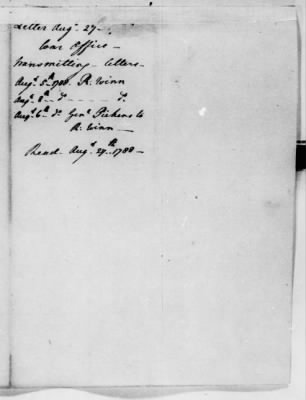 Letter Augt. 27 –
War Office –
transmitting letters –
Augt. 5th 1788. R. Winn
Augt. 8th do - - - - - do.
Augt. 6th do. Genl. Pickens to
R. Winn –
Read Augt. 27th 1788 –